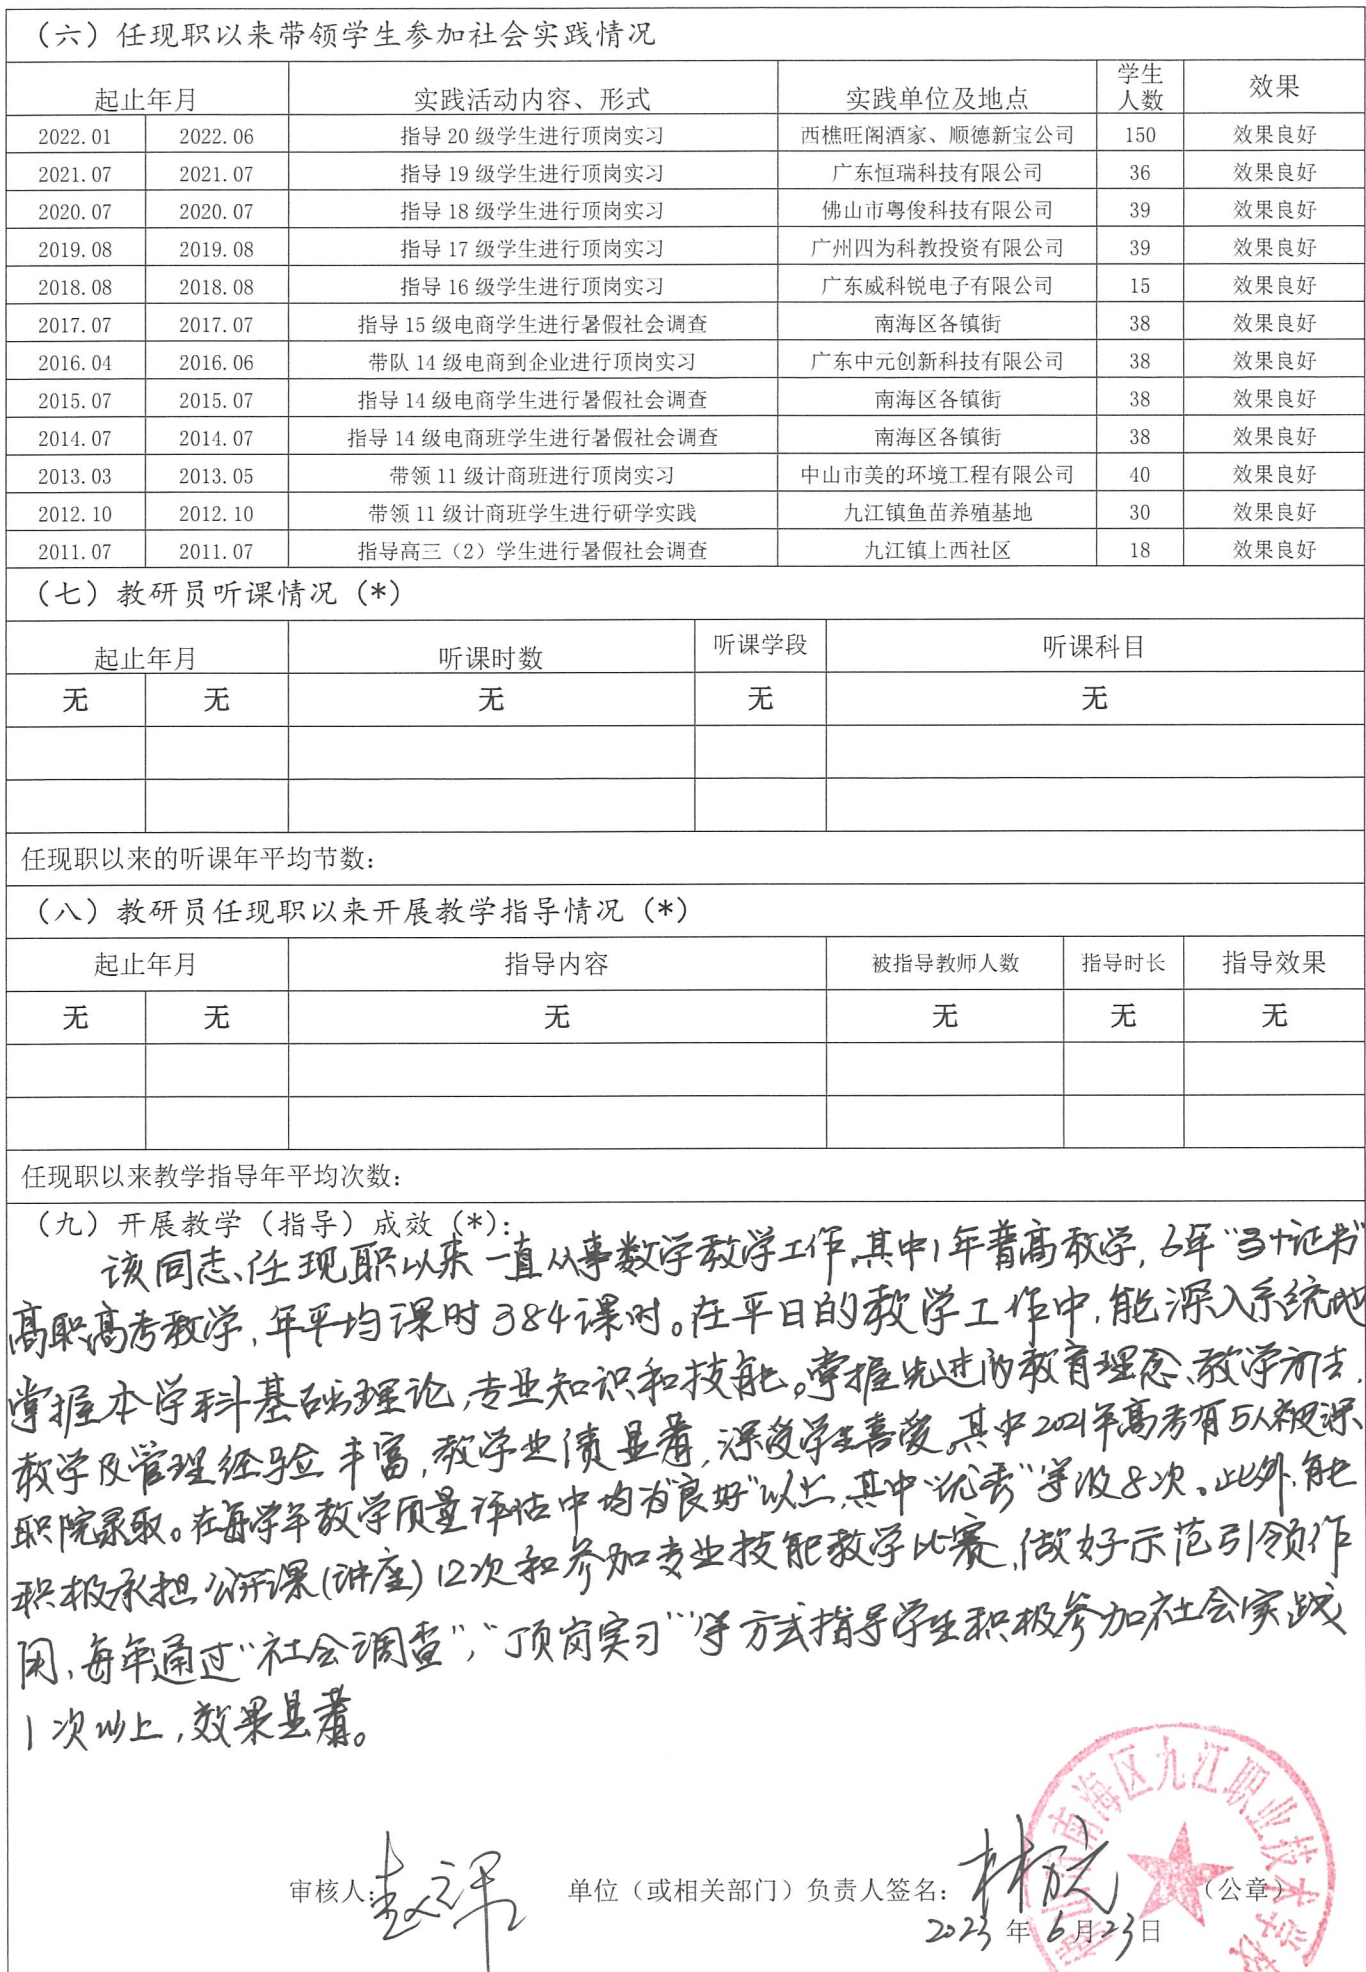 （六）任现职以来带领学生参加社会实践情况
起止年月 实践活动内容、形式 实践单位及地点 学生人数 效果
2022.01 2022.06 指导20级学生进行顶岗实习 西樵旺阁酒家、顺德新宝公司 150 效果良好
2021.07 2021.07 指导19级学生进行顶岗实习 广东恒瑞科技有限公司 36 效果良好
2020.07 2020.07 指导18级学生进行顶岗实习 佛山市粤俊科技有限公司 39 效果良好
2019.08 2019.08 指导17级学生进行顶岗实习 广州四为科教投资有限公司 39 效果良好
2018.08 2018.08 指导16级学生进行顶岗实习 广东威科锐电子有限公司 15 效果良好
2017.07 2017.07 指导15级电商学生进行暑假社会调查 南海区各镇街 38 效果良好
2016.04 2016.06 带队14级电商到企业进行顶岗实习 广东中元创新科技有限公司 38 效果良好
2015.07 2015.07 指导14级电商学生进行暑假社会调查 南海区各镇街 38 效果良好
2014.07 2014.07 指导14级电商班学生进行暑假社会调查 南海区各镇街 38 效果良好
2013.03 2013.05 带领11级计商班进行顶岗实习 中山市美的环境工程有限公司 40 效果良好
2012.10 2012.10 带领11级计商班学生进行研学实践 九江镇鱼苗养殖基地 30 效果良好
2011.07 2011.07 指导高三（2）学生进行暑假社会调查 九江镇上西社区 18 效果良好
（七）教研员听课情况（*）
起止年月 听课时数 听课学段 听课科目
无 无 无 无 无
任现职以来的听课年平均节数：
（八）教研员任现职以来开展教学指导情况（*）
起止年月 指导内容 被指导教师人数 指导时长 指导效果
无 无 无 无 无 无
任现职以来教学指导年平均次数：
（九）开展教学（指导）成效（*）：
该同志、任现职以来一直从事数学教学工作,其中1年普高教学, 6年“3+证书”
高职高考教学, 年平均课时384课时。在平日的教学工作中, 能深入系统地
掌握本学科基础理论,专业知识和技能。掌握先进的教育理念、教学方法,
教学及管理经验丰富, 教学业绩显著, 深受学生喜爱,其中2021年高考有5人被深
职院录取。在每学年教学质量评估中均为“良好”以上,其中“优秀”等级8次。此外,能
积极承担公开课(讲座)12次和参加专业技能教学比赛,做好示范引领作
用,每年通过“社会调查”,“顶岗实习”等方式指导学生积极参加社会实践
1次以上,效果显著。
审核人： 单位（或相关部门）负责人签名： （公章）
2023年6月23日
南海区九江职业技术学校